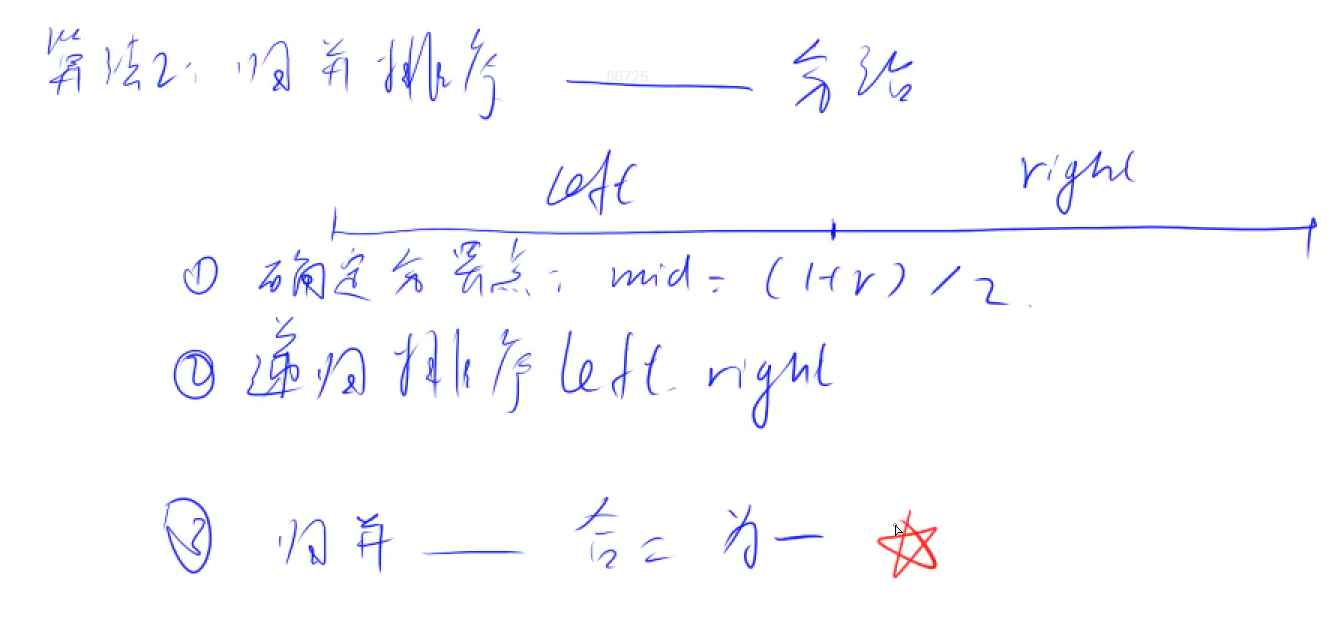 算法2: 归并排序 —— 分治
86725
left right
① 确定分界点: mid = (l+r)/2.
② 递归排序 left. right
③ 归并 —— 合二为一 ☆